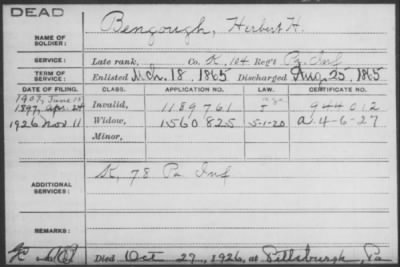 DEAD
NAME OF SOLDIER: Bengough, Herbert H.
SERVICE: Late rank, Co. K, 104 Reg't Pa. Inf
TERM OF SERVICE: Enlisted Mch. 18, 1865 Discharged Aug. 25, 1865
DATE OF FILING. CLASS. APPLICATION NO. LAW. CERTIFICATE NO.
1907, June 15
1897, Apr. 24 Invalid, 1189761 944012
1926 Nov 11 Widow, 1560825 5-1-20 a 4-6-27
Minor,
ADDITIONAL SERVICES: K, 78 Pa Inf
REMARKS:
Died Oct 27, 1926, at Pittsburgh, Pa